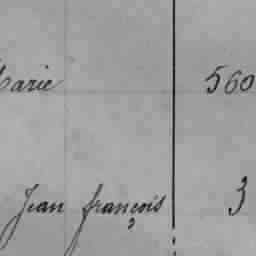 Marie 560
Jean françois 3